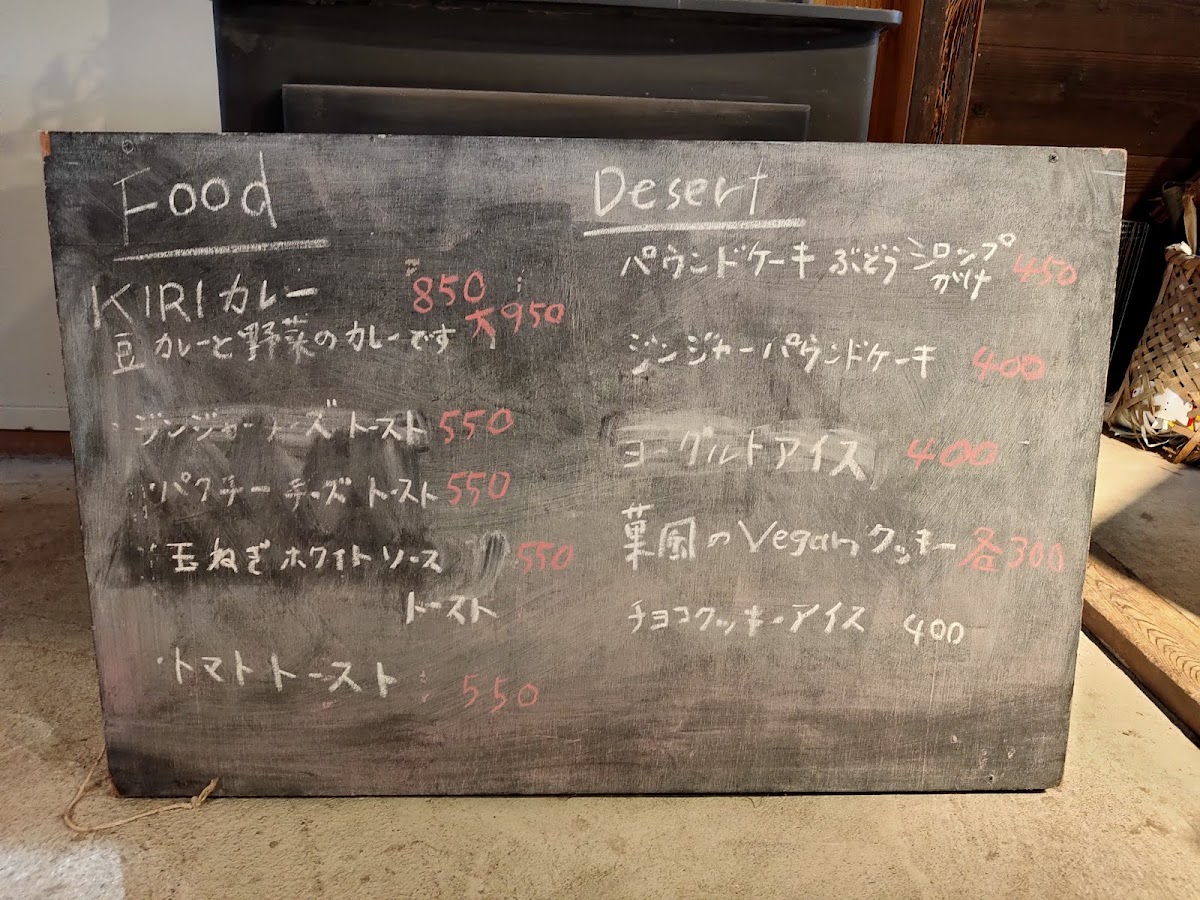 Food
KIRIカレー 850
大950
豆カレーと野菜のカレーです
・ジンジャーチーズトースト 550
・パクチーチーズトースト 550
・玉ねぎホワイトソース 550
トースト
・トマトトースト 550
Desert
パウンドケーキ ぶどうシロップ
がけ 450
ジンジャーパウンドケーキ 400
ヨーグルトアイス 400
菓風のVeganクッキー 各300
チョコクッキーアイス 400